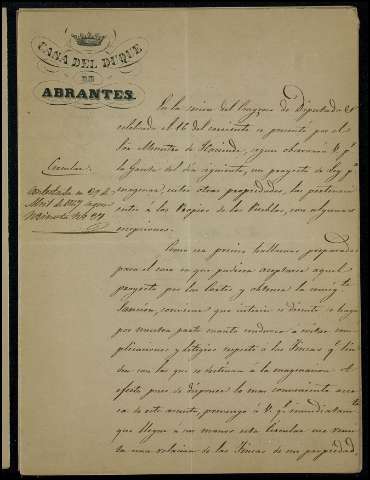 CASA DEL DUQUE
DE
ABRANTES.
Circular.
Contestada en 27 de
Abril de 1847 segun
minuta nº 27
En la sesion del Congreso de Diputados
celebrada el 16 del corriente se presentó por el
Sor Ministro de Hacienda, segun observará V. pr
la Gaceta del dia siguiente, un proyecto de Ley pa
enagenar, entre otras propiedades, las pertenecientes
entes á los Propios de los Pueblos, con algunas
escepciones.
Como sea preciso hallarnos preparados
para el caso en que pudiera aceptarse aquel
proyecto por las Cortes y obtener la
Sancion, conviene que interin se discute se haga
por nuestra parte cuanto conduzca á evitar com
plicaciones y litigios respecto á las Fincas qe lin
den con las que se destinen á la enagenacion. Al
efecto pues de disponer lo mas conveniente acer
ca de este asunto, prevengo á V. qe inmediatamte
que llegue á sus manos esta Circular me remi
ta una relacion de las Fincas de mi propiedad